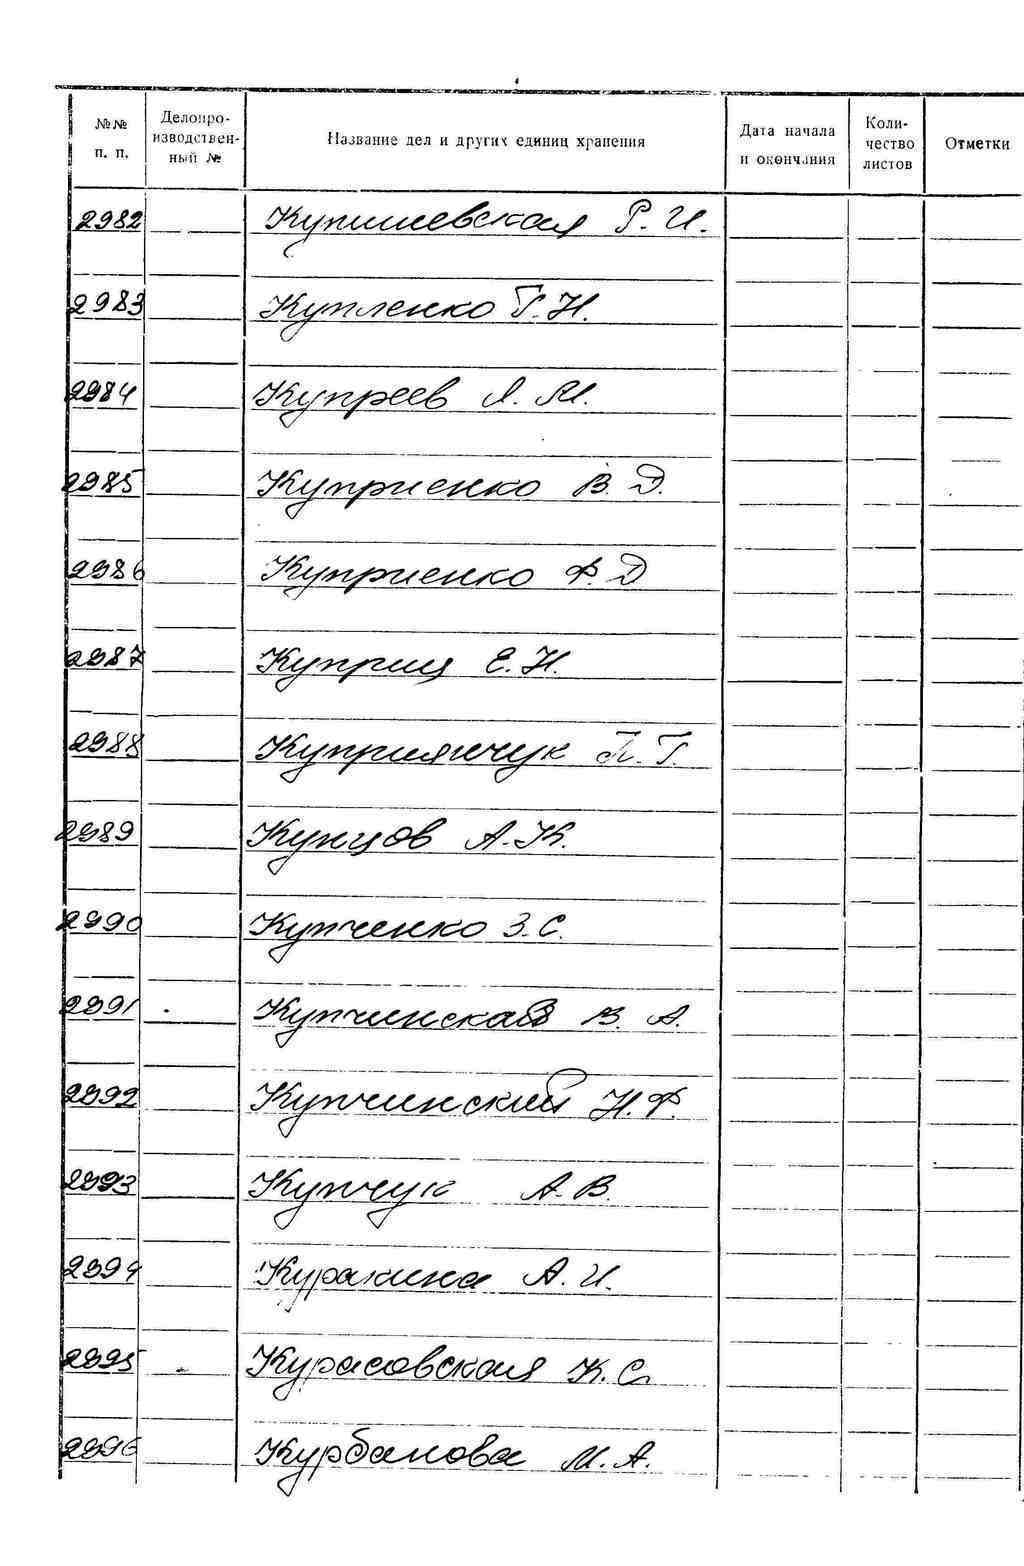 №№ п. п.
Делопро-
изводствен-
ный №
Название дел и других единиц хранения
Дата начала
и окончания
Коли-
чество
листов
Отметки
2982 Купишевская Р. И.
2983 Купленко Г. Н.
2984 Купреев Я. М.
2985 Куприенко В. Д.
2986 Куприенко Ф. Д
2987 Куприц Е. Н.
2988 Куприянчук П. Г.
2989 Купцов А. К.
2990 Купченко З. С.
2991 Купчинская В. А.
2992 Купчинский Н. Ф.
2993 Купчук А. В.
2994 Куракина А. И.
2995 Курасовская К. С.
2996 Курбанова М. А.